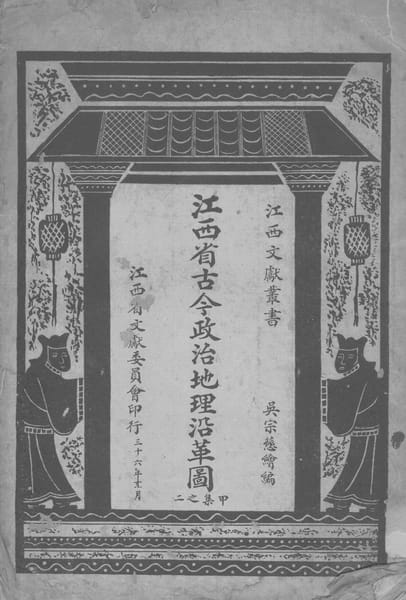 江西文獻叢書
吳宗慈繪編
江西省古今政治地理沿革圖
甲集之二
江西省文獻委員會印行三十六年 月